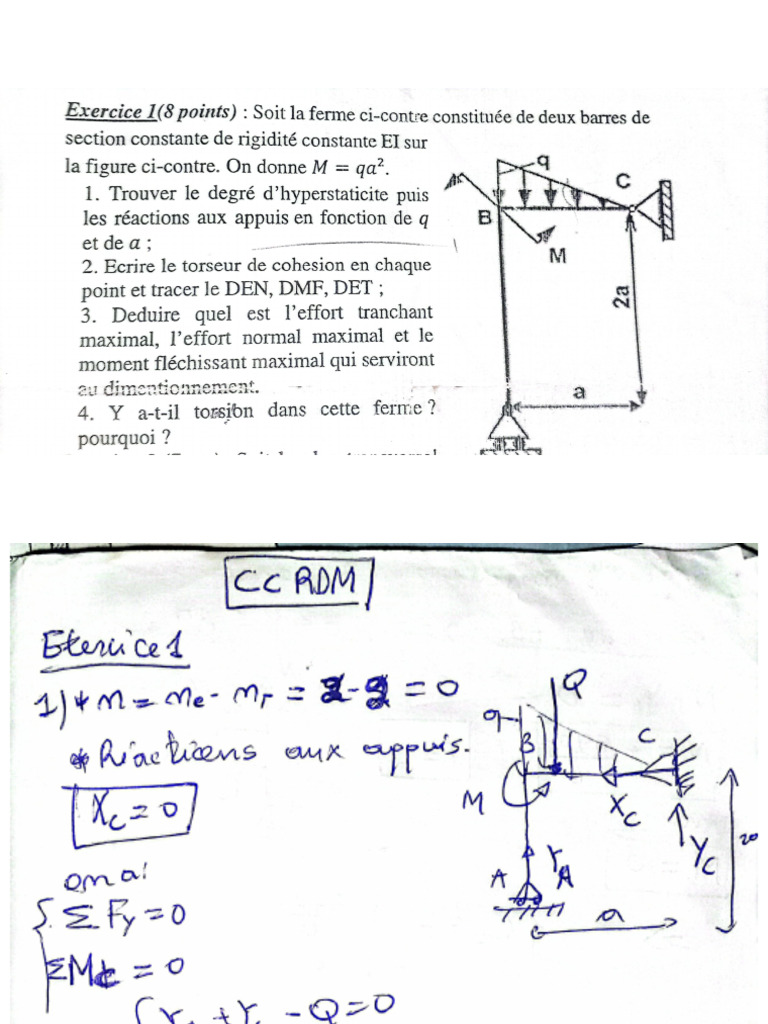 Exercice 1(8 points) : Soit la ferme ci-contre constituée de deux barres de
section constante de rigidité constante EI sur
la figure ci-contre. On donne M = qa².
1. Trouver le degré d'hyperstaticite puis
les réactions aux appuis en fonction de q
et de a ;
2. Ecrire le torseur de cohesion en chaque
point et tracer le DEN, DMF, DET ;
3. Deduire quel est l'effort tranchant
maximal, l'effort normal maximal et le
moment fléchissant maximal qui serviront
au dimentionnement.
4. Y a-t-il torsion dans cette ferme ?
pourquoi ?
q
C
B
M
2a
a
CC RDM
Exercice 1
1) * n = ne - nr = - = 0
* Réactions aux appuis.
Xc = 0
on a:
ΣFy = 0
ΣMc = 0
- Q = 0
Q
q
B
C
M
Xc
Yc
A
YA
a